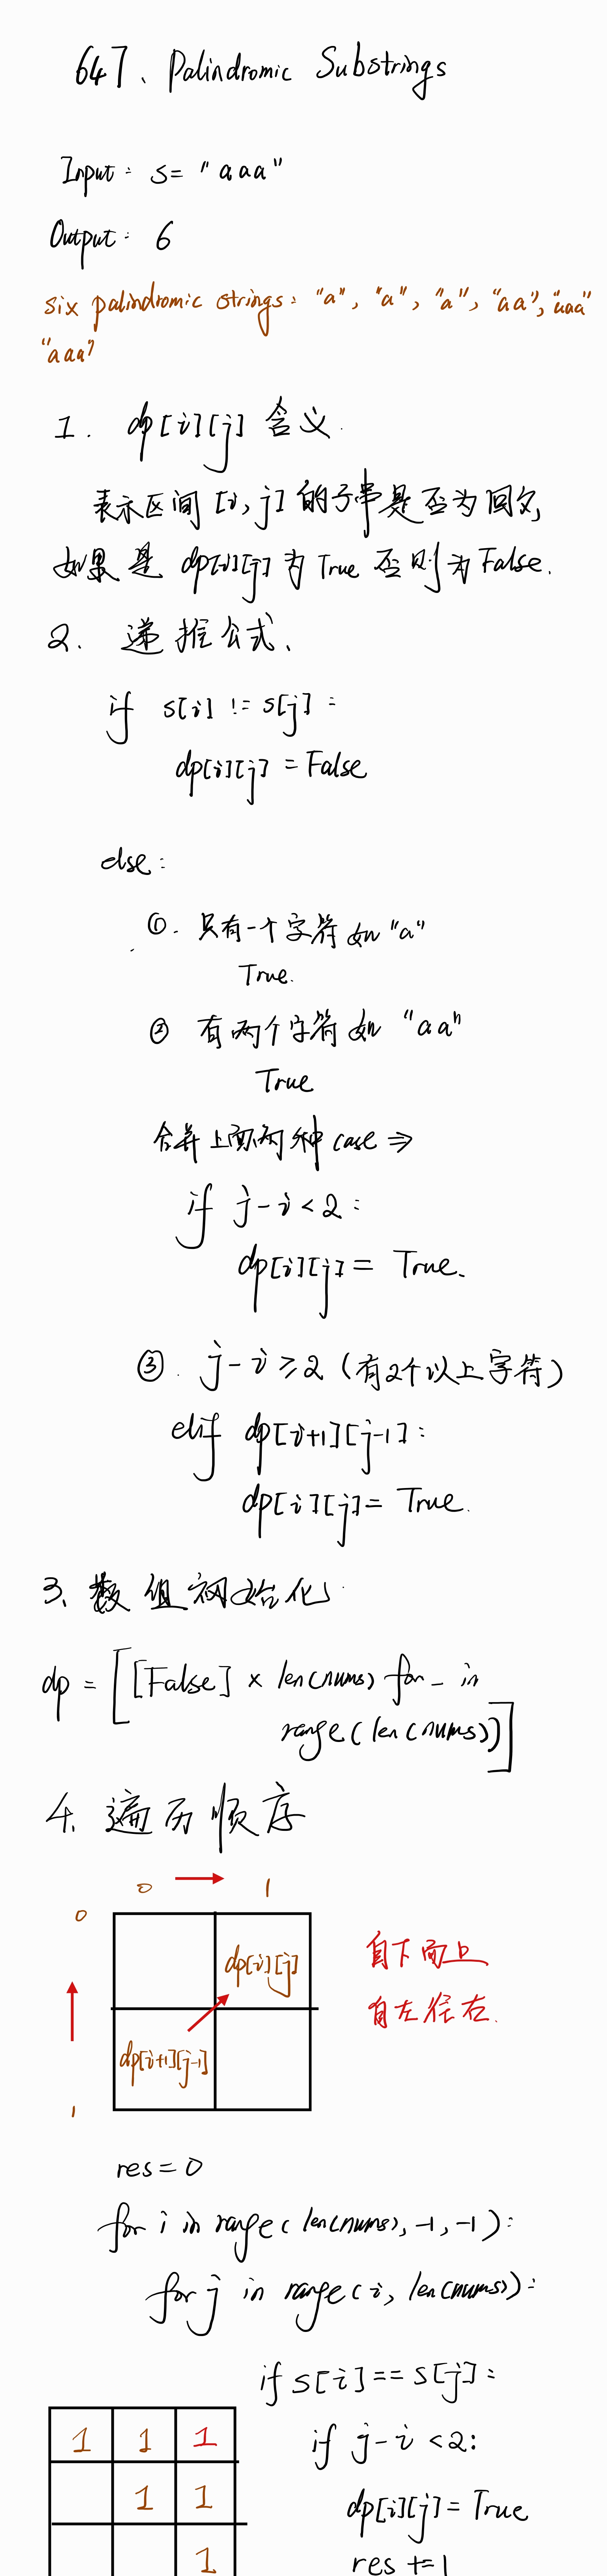 647、Palindromic Substrings
Input: s= "aaa"
Output: 6
six palindromic strings: "a", "a", "a", "aa", "aaa"
"aaa"
1. dp[i][j] 含义.
表示区间 [i, j] 的子串是否为回文,
如果是 dp[i][j] 为 True 否则为 False.
2. 递推公式、
if s[i] != s[j]:
dp[i][j] = False
else:
①. 只有一个字符如 "a"
True.
② 有两个字符如 "aa"
True
合并上面两种 case ⇒
if j-i<2:
dp[i][j] = True.
③. j-i≥2 (有2个以上字符)
elif dp[i+1][j-1]:
dp[i][j] = True.
3、数组初始化.
dp = [[False] × len(nums) for _ in
range(len(nums))]
4、遍历顺序
0 → 1
0
dp[i][j]
自下而上
自左往右.
dp[i+1][j-1]
1
res = 0
for i in range(len(nums), -1, -1):
for j in range(i, len(nums)):
if s[i] == s[j]:
1 1 1
if j-i<2:
1 1
dp[i][j] = True
1
res +=1